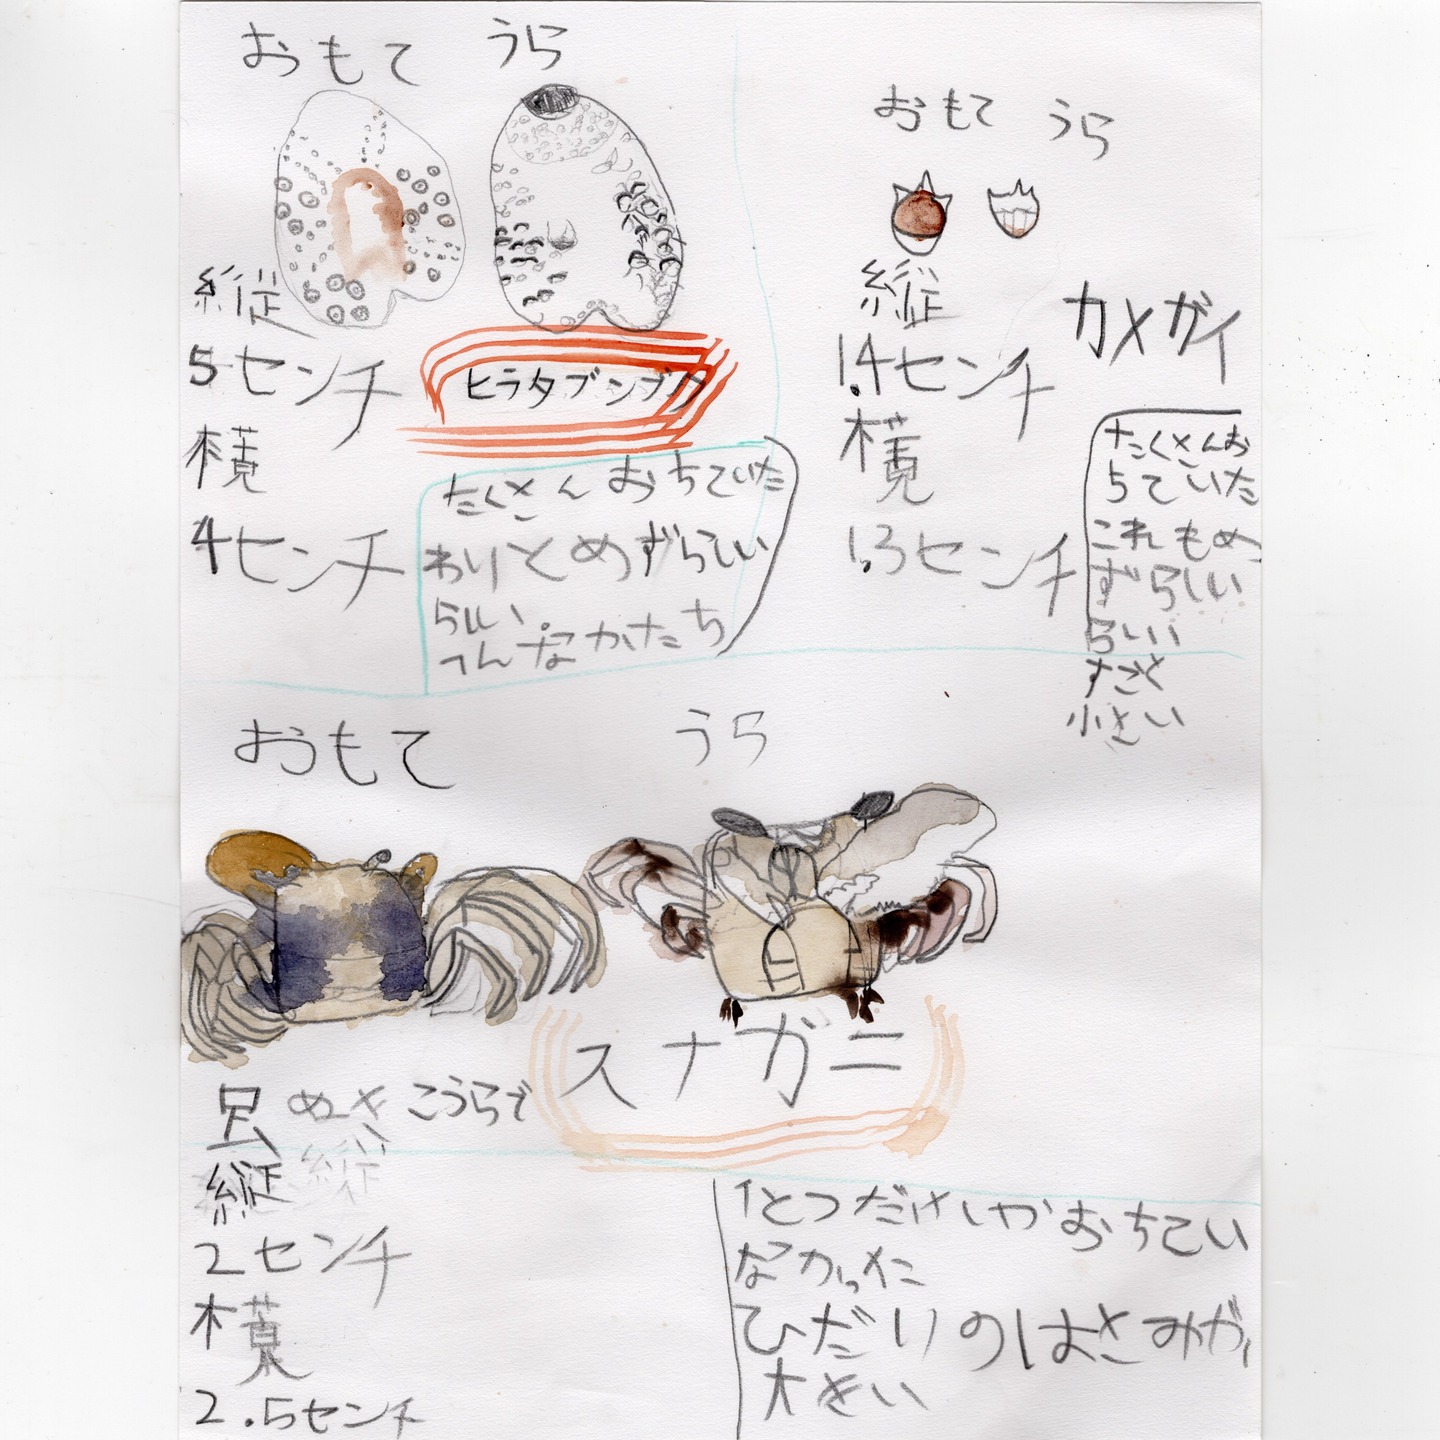 おもて
うら
縦
5センチ
横
4センチ
ヒラタブンブク
たくさんおちていた
わりとめずらしい
らしい。
へんなかたち
おもて
うら
縦
1.4センチ
横
1.3センチ
カメガイ
たくさんお
ちていた
これもめ
ずらしい
らしい
すごく
小さい
おもて
うら
スナガニ
足ぬきこうらで
縦
2センチ
横
2.5センチ
1とつだけしかおちてい
なかった
ひだりのはさみが
大きい